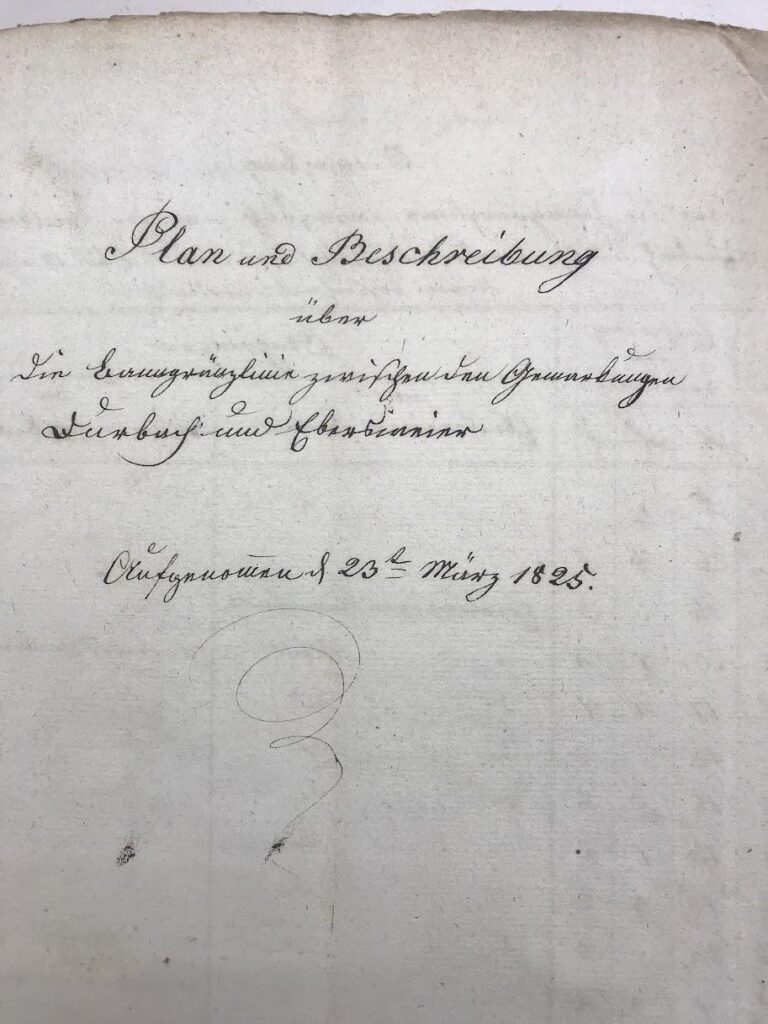 Plan und Beschreibung
über
die Banngränzlinie zwischen den Gemarkungen
Durbach und Ebersweier
Aufgenom̅en d 23t März 1825.